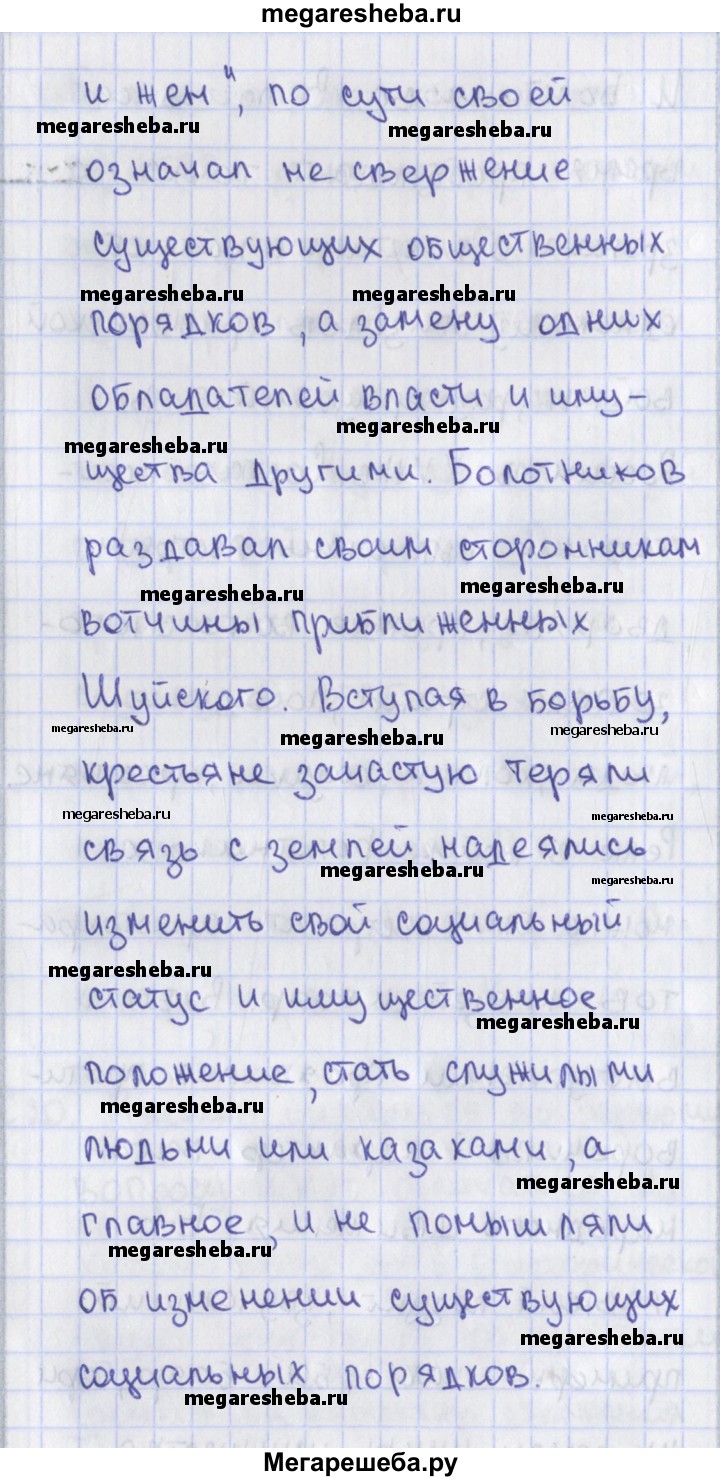 megaresheba.ru
и жен", по сути своей
megaresheba.ru megaresheba.ru
означал не свержение
существующих общественных
megaresheba.ru megaresheba.ru
порядков, а замену одних
обладателей власти и иму-
megaresheba.ru
megaresheba.ru
щества другими. Болотников
раздавал своим сторонникам
megaresheba.ru megaresheba.ru
вотчины приближенных
Шуйского. Вступая в борьбу,
megaresheba.ru megaresheba.ru megaresheba.ru
крестьяне зачастую теряли
megaresheba.ru megaresheba.ru
связь с землей надеялись
megaresheba.ru megaresheba.ru
изменить свой социальный
megaresheba.ru
статус и имущественное
megaresheba.ru
положение, стать служилыми
megaresheba.ru
людьми или казаками, а
megaresheba.ru
главное, и не помышляли
megaresheba.ru
об изменении существующих
megaresheba.ru
социальных порядков.
megaresheba.ru
Мегарешеба.ру